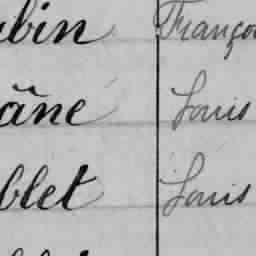 ubin Françoi
âne Louis
blet Louis